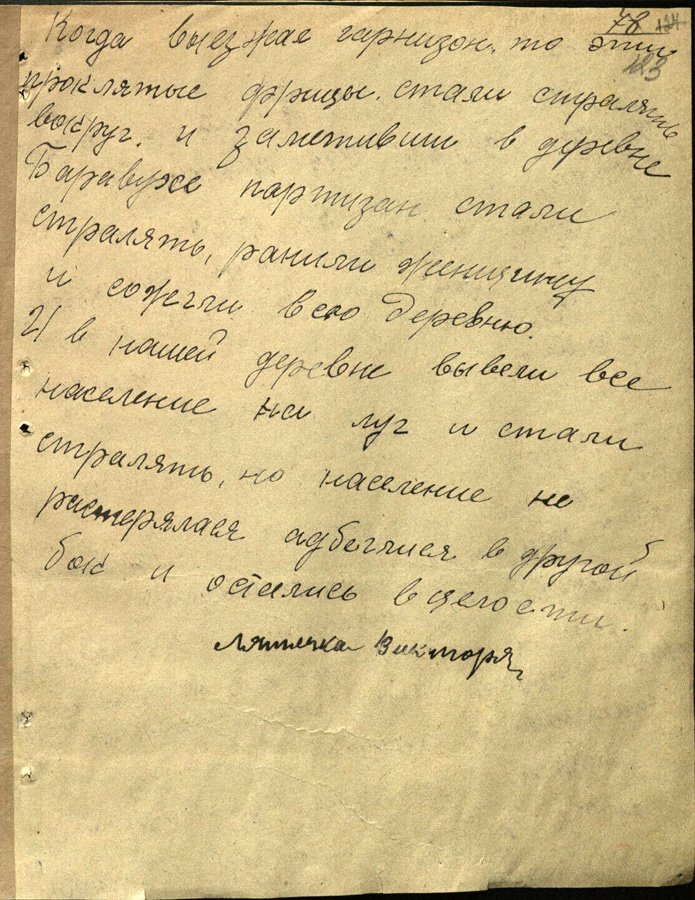 78 124
Когда выезжая гарнизон. то эти
123
проклятые фрицы. стали стралять
вокруг. и заметивши в деревне
Баравуже партизан стали
стралять, ранили женщину
и сожгли всю деревню.
И в нашей деревне вывели все
население на луг и стали
стралять, но население не
растерялася адбеглися в другой
бок и остались в целости.
Викторя